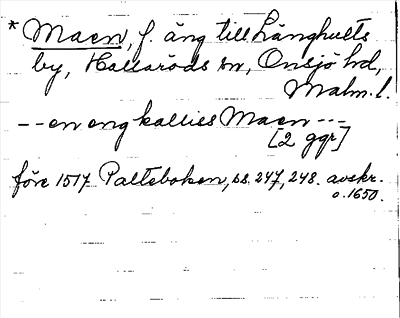 * Maen, f. äng till Långhults
by, Hallaröds sn, Onsjö hd,
Malm. l.
-- en eng kalliss Maen ---
[2 ggr]
före 1517 Palteboken, ss. 247, 248. avskr.
o. 1650.